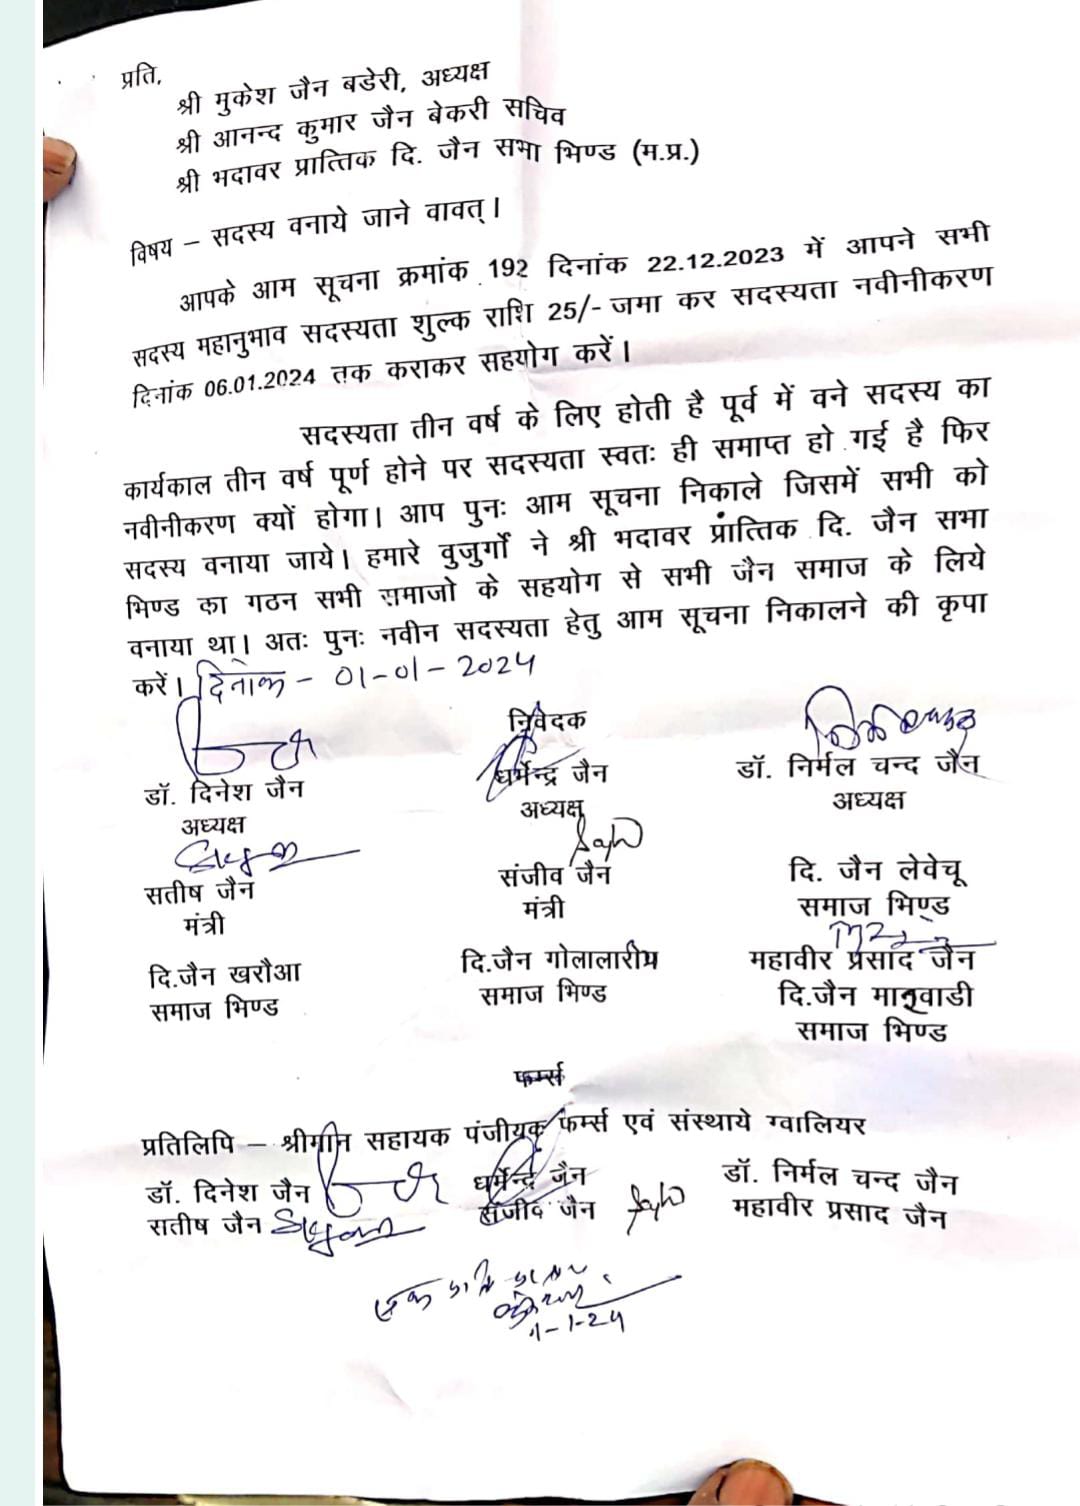 प्रति,
श्री मुकेश जैन बडेरी, अध्यक्ष
श्री आनन्द कुमार जैन बेकरी सचिव
श्री भदावर प्रात्तिक दि. जैन सभा भिण्ड (म.प्र.)
विषय – सदस्य वनाये जाने वावत्।
आपके आम सूचना क्रमांक 192 दिनांक 22.12.2023 में आपने सभी
सदस्य महानुभाव सदस्यता शुल्क राशि 25/- जमा कर सदस्यता नवीनीकरण
दिनांक 06.01.2024 तक कराकर सहयोग करें।
सदस्यता तीन वर्ष के लिए होती है पूर्व में वने सदस्य का
कार्यकाल तीन वर्ष पूर्ण होने पर सदस्यता स्वतः ही समाप्त हो गई है फिर
नवीनीकरण क्यों होगा। आप पुनः आम सूचना निकाले जिसमें सभी को
सदस्य वनाया जाये। हमारे वुजुर्गो ने श्री भदावर प्रांत्तिक दि. जैन सभा
भिण्ड का गठन सभी समाजो के सहयोग से सभी जैन समाज के लिये
वनाया था। अतः पुनः नवीन सदस्यता हेतु आम सूचना निकालने की कृपा
करें। दिनांक - 01-01-2024
निवेदक
डॉ. दिनेश जैन धर्मेन्द्र जैन डॉ. निर्मल चन्द जैन
अध्यक्ष अध्यक्ष अध्यक्ष
सतीष जैन संजीव जैन दि. जैन लेवेचू
मंत्री मंत्री समाज भिण्ड
दि.जैन खरौआ दि.जैन गोलालारीय महावीर प्रसाद जैन
समाज भिण्ड समाज भिण्ड दि.जैन मारवाडी
समाज भिण्ड
फर्म्स
प्रतिलिपि – श्रीमान सहायक पंजीयक फर्म्स एवं संस्थाये ग्वालियर
डॉ. दिनेश जैन धर्मेन्द्र जैन डॉ. निर्मल चन्द जैन
सतीष जैन संजीव जैन महावीर प्रसाद जैन
1-1-24